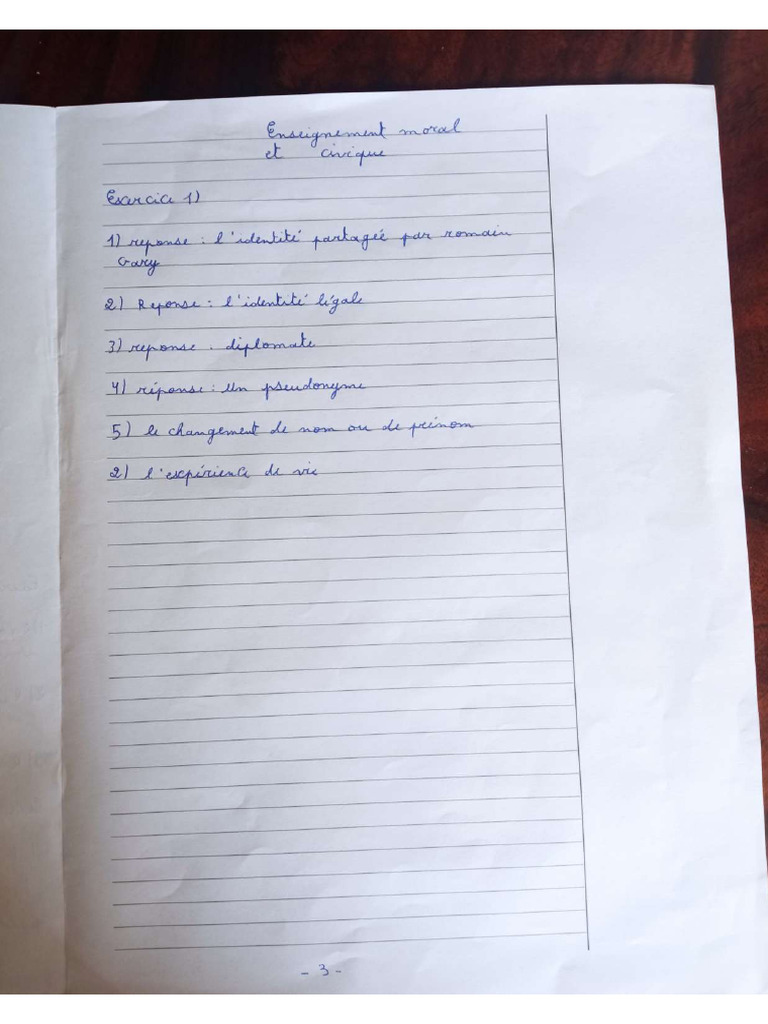 Enseignement moral
et civique
Exercice 1)
1) reponse : l'identité partagée par romain
Gary
2) Reponse : l'identité légale
3) reponse . diplomate
4) réponse : un pseudonyme
5) le changement de nom ou de prénom
2) l'expérience de vie
- 3 -